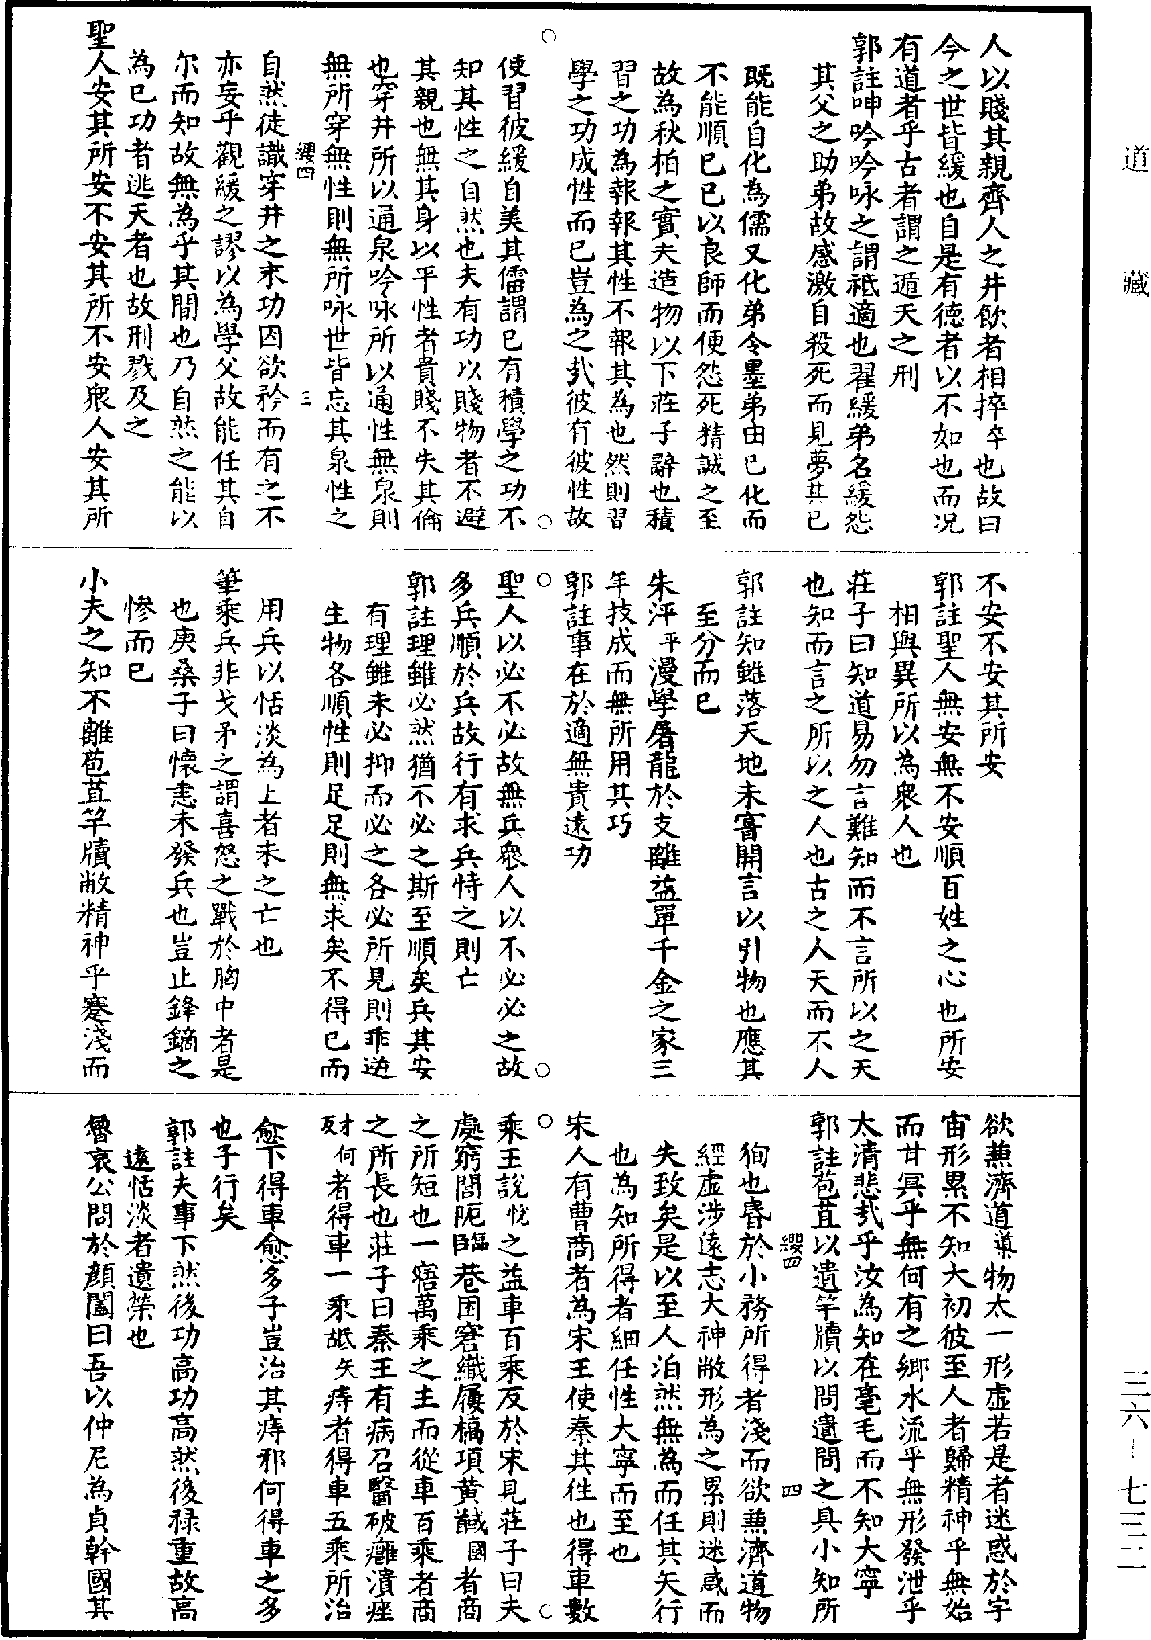 道藏
三六-七三二
人以賤其親齊人之井飲者相捽卒也故曰
今之世皆緩也自是有德者以不如也而況
有道者乎古者謂之遁天之刑
郭註呻吟吟咏之謂祗適也翟緩弟名緩怨
其父之助弟故感激自殺死而見夢其已
既能自化為儒又化弟令墨弟由已化而
不能順已已以良師而便怨死精誠之至
故為秋柏之實夫造物以下莊子辭也積
習之功為報報其性不報其為也然則習
學之功成性而已豈為之㢤彼有彼性故
使習彼緩自美其儒謂已有積學之功不
知其性之自然也夫有功以賤物者不避
其親也無其身以平性者貴賤不失其倫
也穿井所以通泉吟咏所以通性無泉則
無所穿無性則無所咏世皆忘其泉性之
纓四 三
自然徒識穿井之末功因欲矜而有之不
亦妄乎觀緩之謬以為學父故能任其自
尔而知故無為乎其間也乃自然之能以
為已功者逃天者也故刑戮及之
聖人安其所安不安其所不安眾人安其所
不安不安其所安
郭註聖人無安無不安順百姓之心也所安
相與異所以為眾人也
莊子曰知道易勿言難知而不言所以之天
也知而言之所以之人也古之人天而不人
郭註知雖落天地未嘗開言以引物也應其
至分而已
朱泙平漫學屠龍於支離益單千金之家三
年技成而無所用其巧
郭註事在於適無貴遠功
聖人以必不必故無兵眾人以不必必之故
多兵順於兵故行有求兵恃之則亡
郭註理雖必然猶不必之斯至順矣兵其安
有理雖未必抑而必之各必所見則乖逆
生物各順性則足足則無求矣不得已而
用兵以恬淡為上者未之亡也
筆乘兵非戈矛之謂喜怒之戰於胸中者是
也庚桑子曰懷恚未發兵也豈止鋒鏑之
慘而已
小夫之知不離苞苴竿牘敝精神乎蹇淺而
欲兼濟道導物太一形虛若是者迷惑於宇
宙形累不知大初彼至人者歸精神乎無始
而甘冥乎無何有之鄉水流乎無形發泄乎
太清悲㢤乎汝為知在毫毛而不知大寧
郭註苞苴以遺竿牘以問遺問之具小知所
纓四 四
狥也昏於小務所得者淺而欲兼濟道物
經虛涉遠志大神敝形為之累則迷惑而
失致矣是以至人泊然無為而任其天行
也為知所得者細任性大寧而至也
宋人有曹商者為宋王使秦其往也得車數
乘王說悅之益車百乘反於宋見莊子曰夫
處窮閭阨臨巷困窘織屨槁項黃馘國者商
之所短也一寤萬乘之主而從車百乘者商
之所長也莊子曰秦王有病召醫破癰潰痤
才何者得車一乘舐矢痔者得車五乘所治
愈下得車愈多子豈治其痔邪何得車之多
也子行矣
郭註夫事下然後功高功高然後祿重故高
遠恬淡者遺榮也
魯哀公問於顏闔曰吾以仲尼為貞幹國其